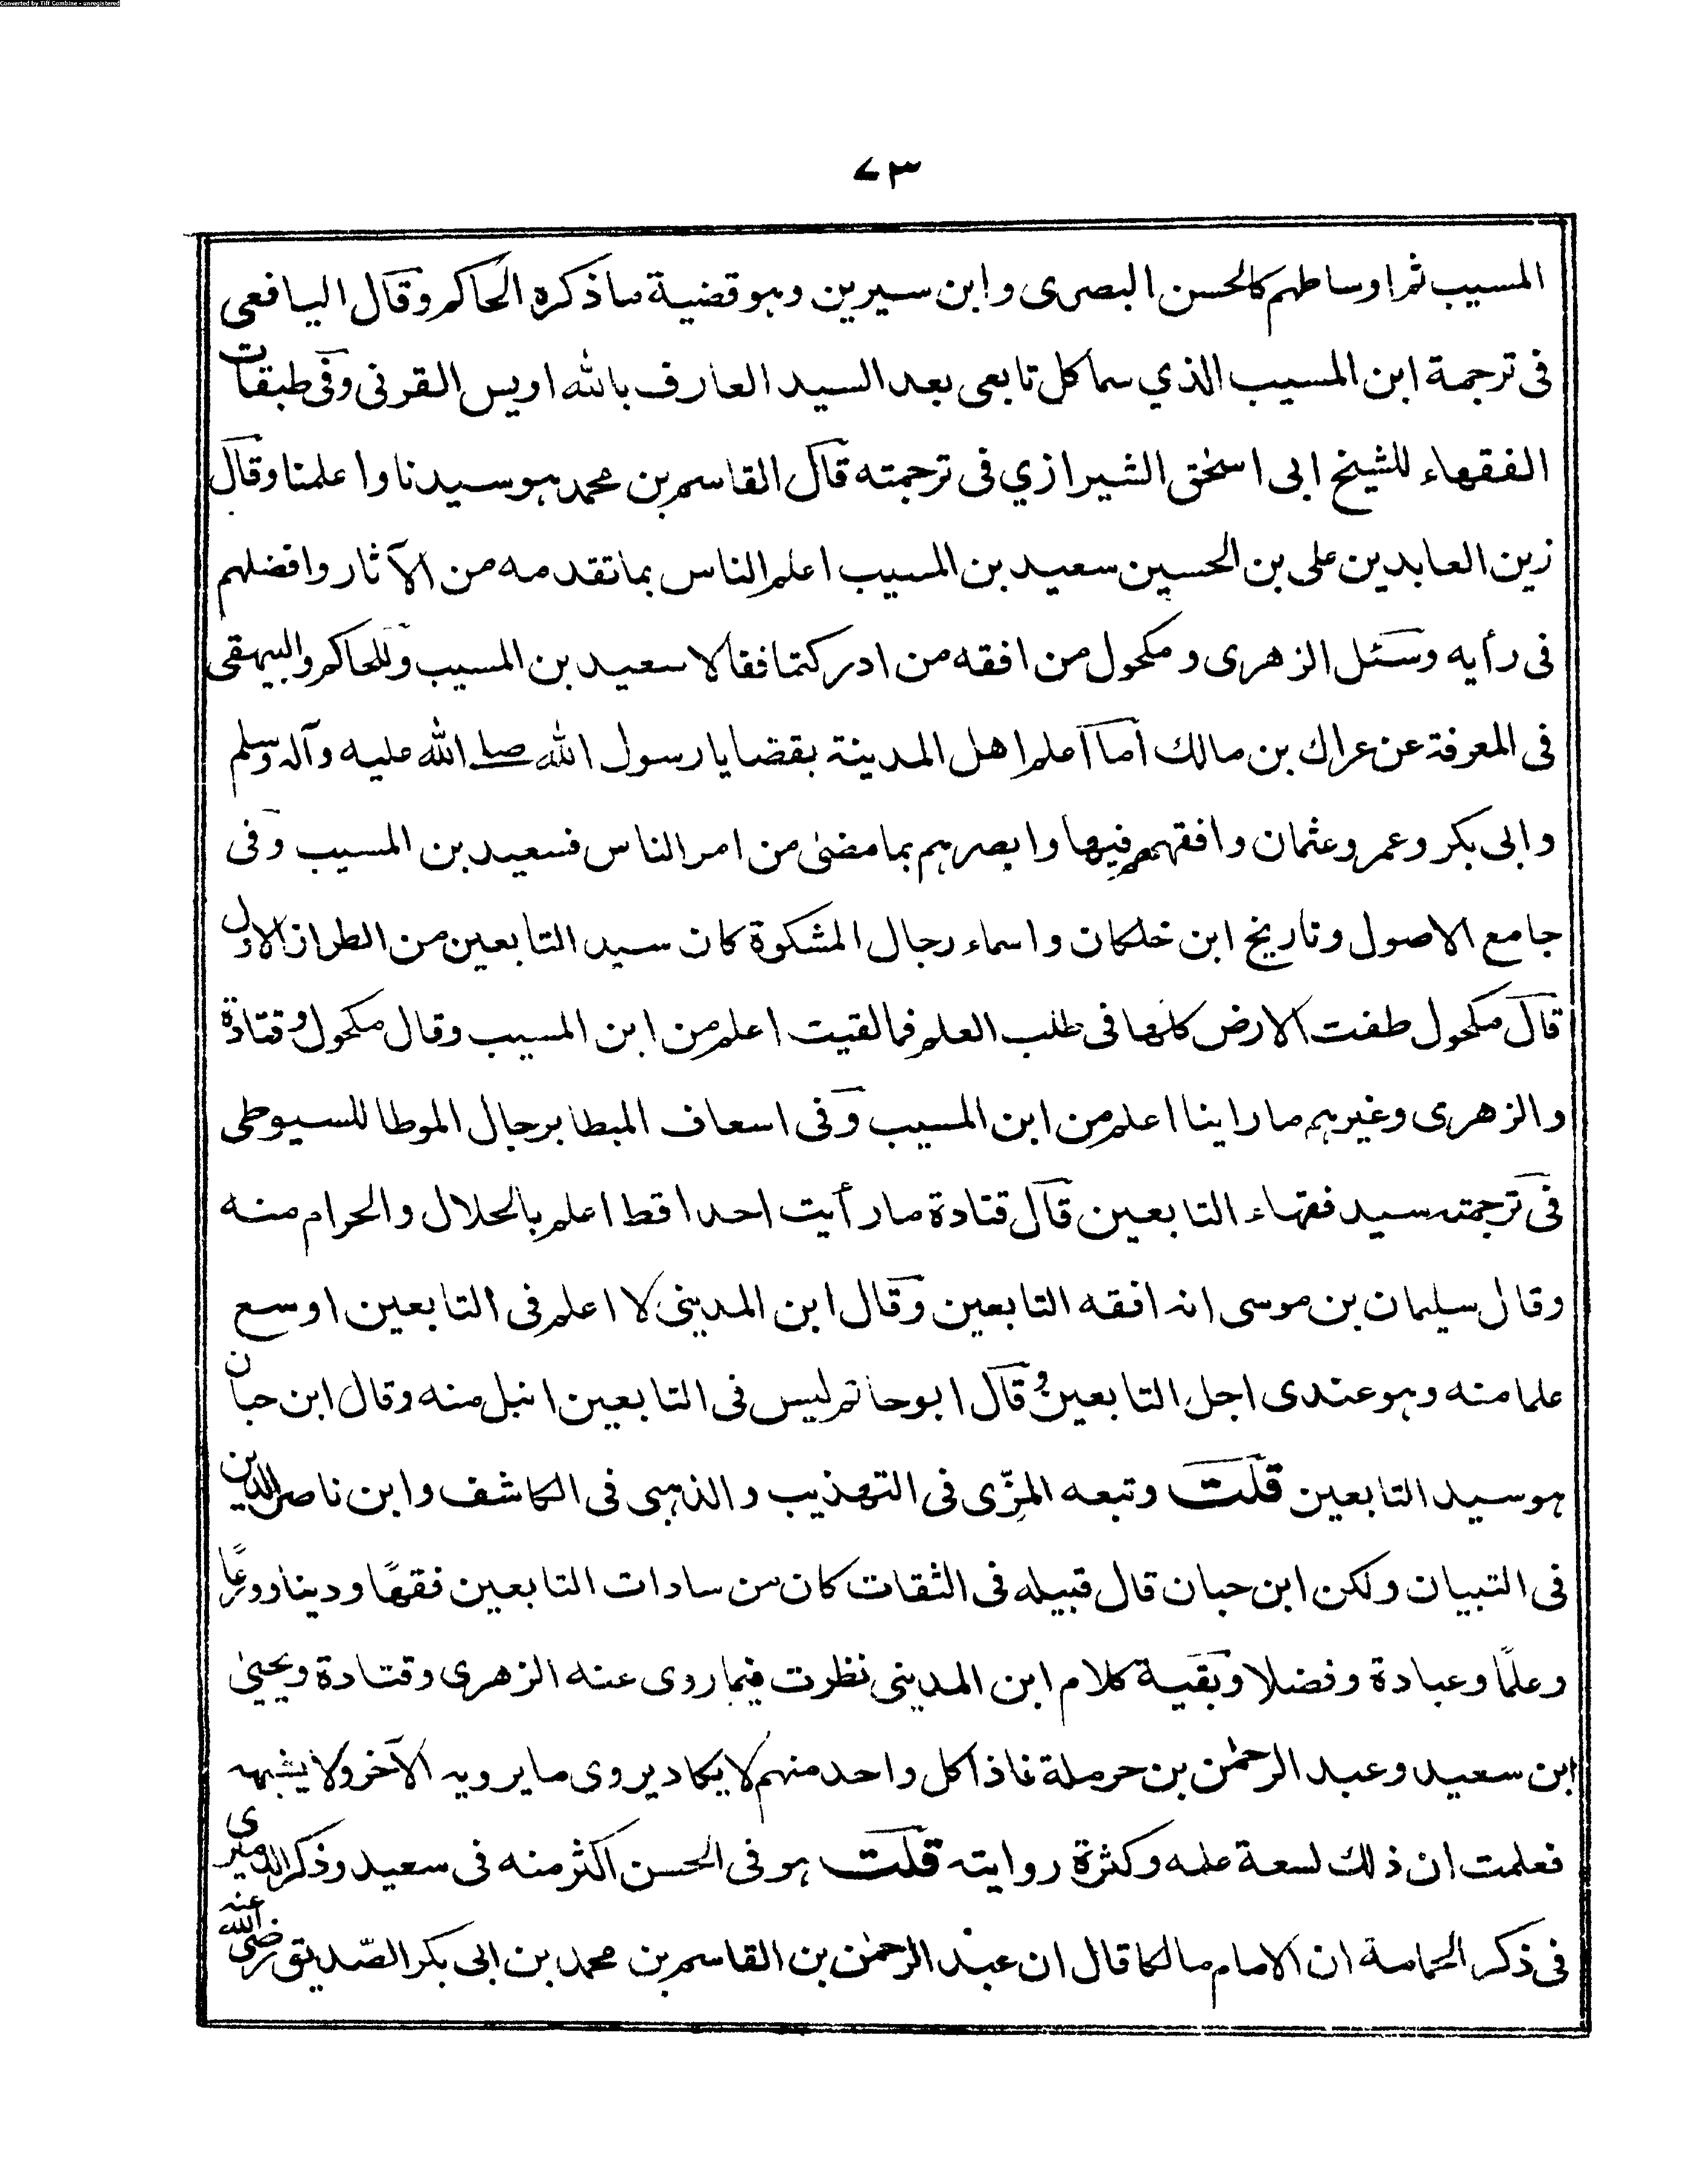 Converted by Tiff Combine - unregistered
٧٣
المسيب ثم اوساطهم كالحسن البصرى وابن سيرين وهو قضية ما ذكره الحاكم وقال اليافعى
فى ترجمة ابن المسيب الذي سما كل تابعى بعد السيد العارف بالله اويس القرنى وفى طبقات
الفقهاء للشيخ ابى اسحٰق الشيرازي فى ترجمته قال القاسم بن محمد هو سيدنا واعلمنا وقال
زين العابدين على بن الحسين سعيد بن المسيب اعلم الناس بما تقدمه من الآثار وافضلهم
فى رأيه وسئل الزهرى ومكحول من افقه من ادركتما فقالا سعيد بن المسيب وللحاكم والبيهقى
فى المعرفة عن عراك بن مالك اما اعلم اهل المدينة بقضايا رسول الله صلى الله عليه وآله وسلم
وابى بكر وعمر وعثمان وافقههم فيها وابصرهم بما مضىٰ من امر الناس فسعيد بن المسيب وفى
جامع الاصول وتاريخ ابن خلكان واسماء رجال المشكوة كان سيد التابعين من الطراز الاول
قال مكحول طفت الارض كلها فى طلب العلم فما لقيت اعلم من ابن المسيب وقال مكحول وقتادة
والزهرى وغيرهم ما راينا اعلم من ابن المسيب وفى اسعاف المبطا برجال الموطا للسيوطى
فى ترجمته سيد فقهاء التابعين قال قتادة ما رأيت احدا قط اعلم بالحلال والحرام منه
وقال سليمان بن موسى انه افقه التابعين وقال ابن المدينى لا اعلم فى التابعين اوسع
علما منه وهو عندى اجل التابعين وقال ابو حاتم ليس فى التابعين انبل منه وقال ابن حبان
هو سيد التابعين قلت وتبعه المزّى فى التهذيب والذهبى فى الكاشف وابن ناصر الدين
فى التبيان ولكن ابن حبان قال قبيله فى الثقات كان من سادات التابعين فقهًا ودينا وورعًا
وعلمًا وعبادة وفضلا وبقية كلام ابن المدينى نظرت فيما روى عنه الزهرى وقتادة ويحيىٰ
ابن سعيد وعبد الرحمٰن بن حرملة فاذا كل واحد منهم لا يكاد يروى ما يرويه الآخر ولا يشبهه
فعلمت ان ذلك لسعة علمه وكثرة روايته قلت هو فى الحسن اكثر منه فى سعيد وذكر الدميرى
فى ذكر الحمامة ان الامام مالكا قال ان عبد الرحمٰن بن القاسم بن محمد بن ابى بكر الصّديق رضى الله عنه